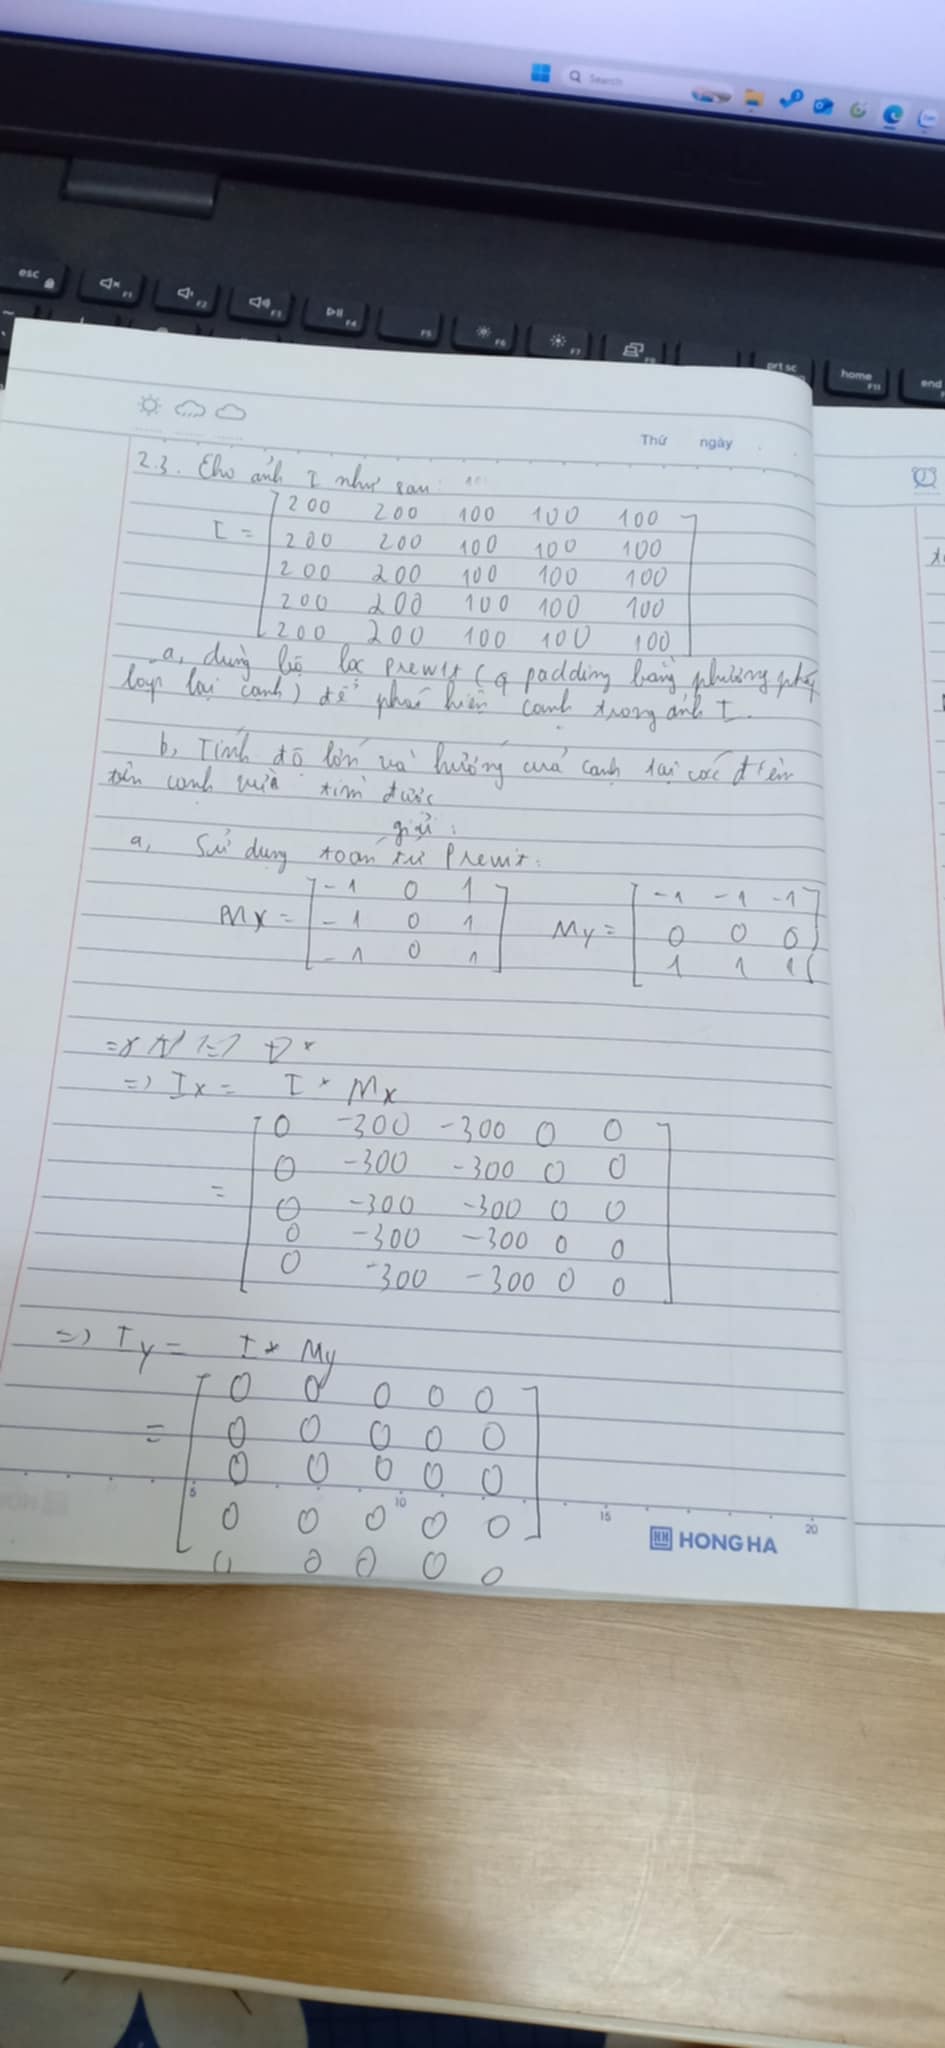 Search
esc
F1
F2
F3
F4
F5
F6
F7
prt sc
home
F11
end
Thứ ngày
2.3. Cho ảnh I như sau:
200 200 100 100 100
I = 200 200 100 100 100
200 200 100 100 100
200 200 100 100 100
200 200 100 100 100
a, dùng bộ lọc prewit ( padding bằng phương pháp
lặp lại cạnh) để phát hiện cạnh trong ảnh I.
b, Tính độ lớn và hướng của cạnh tại các điểm
trên cạnh vừa tìm được
giải:
a, Sử dụng toán tử Prewit:
-1 0 1 -1 -1 -1
Mx = -1 0 1 My = 0 0 0
-1 0 1 1 1 1
=> Ix = I * Mx
0 -300 -300 0 0
0 -300 -300 0 0
= 0 -300 -300 0 0
0 -300 -300 0 0
0 -300 -300 0 0
=> Iy = I * My
0 0 0 0 0
= 0 0 0 0 0
0 0 0 0 0
5 10 15 20
0 0 0 0 0
HONG HA
0 0 0 0 0